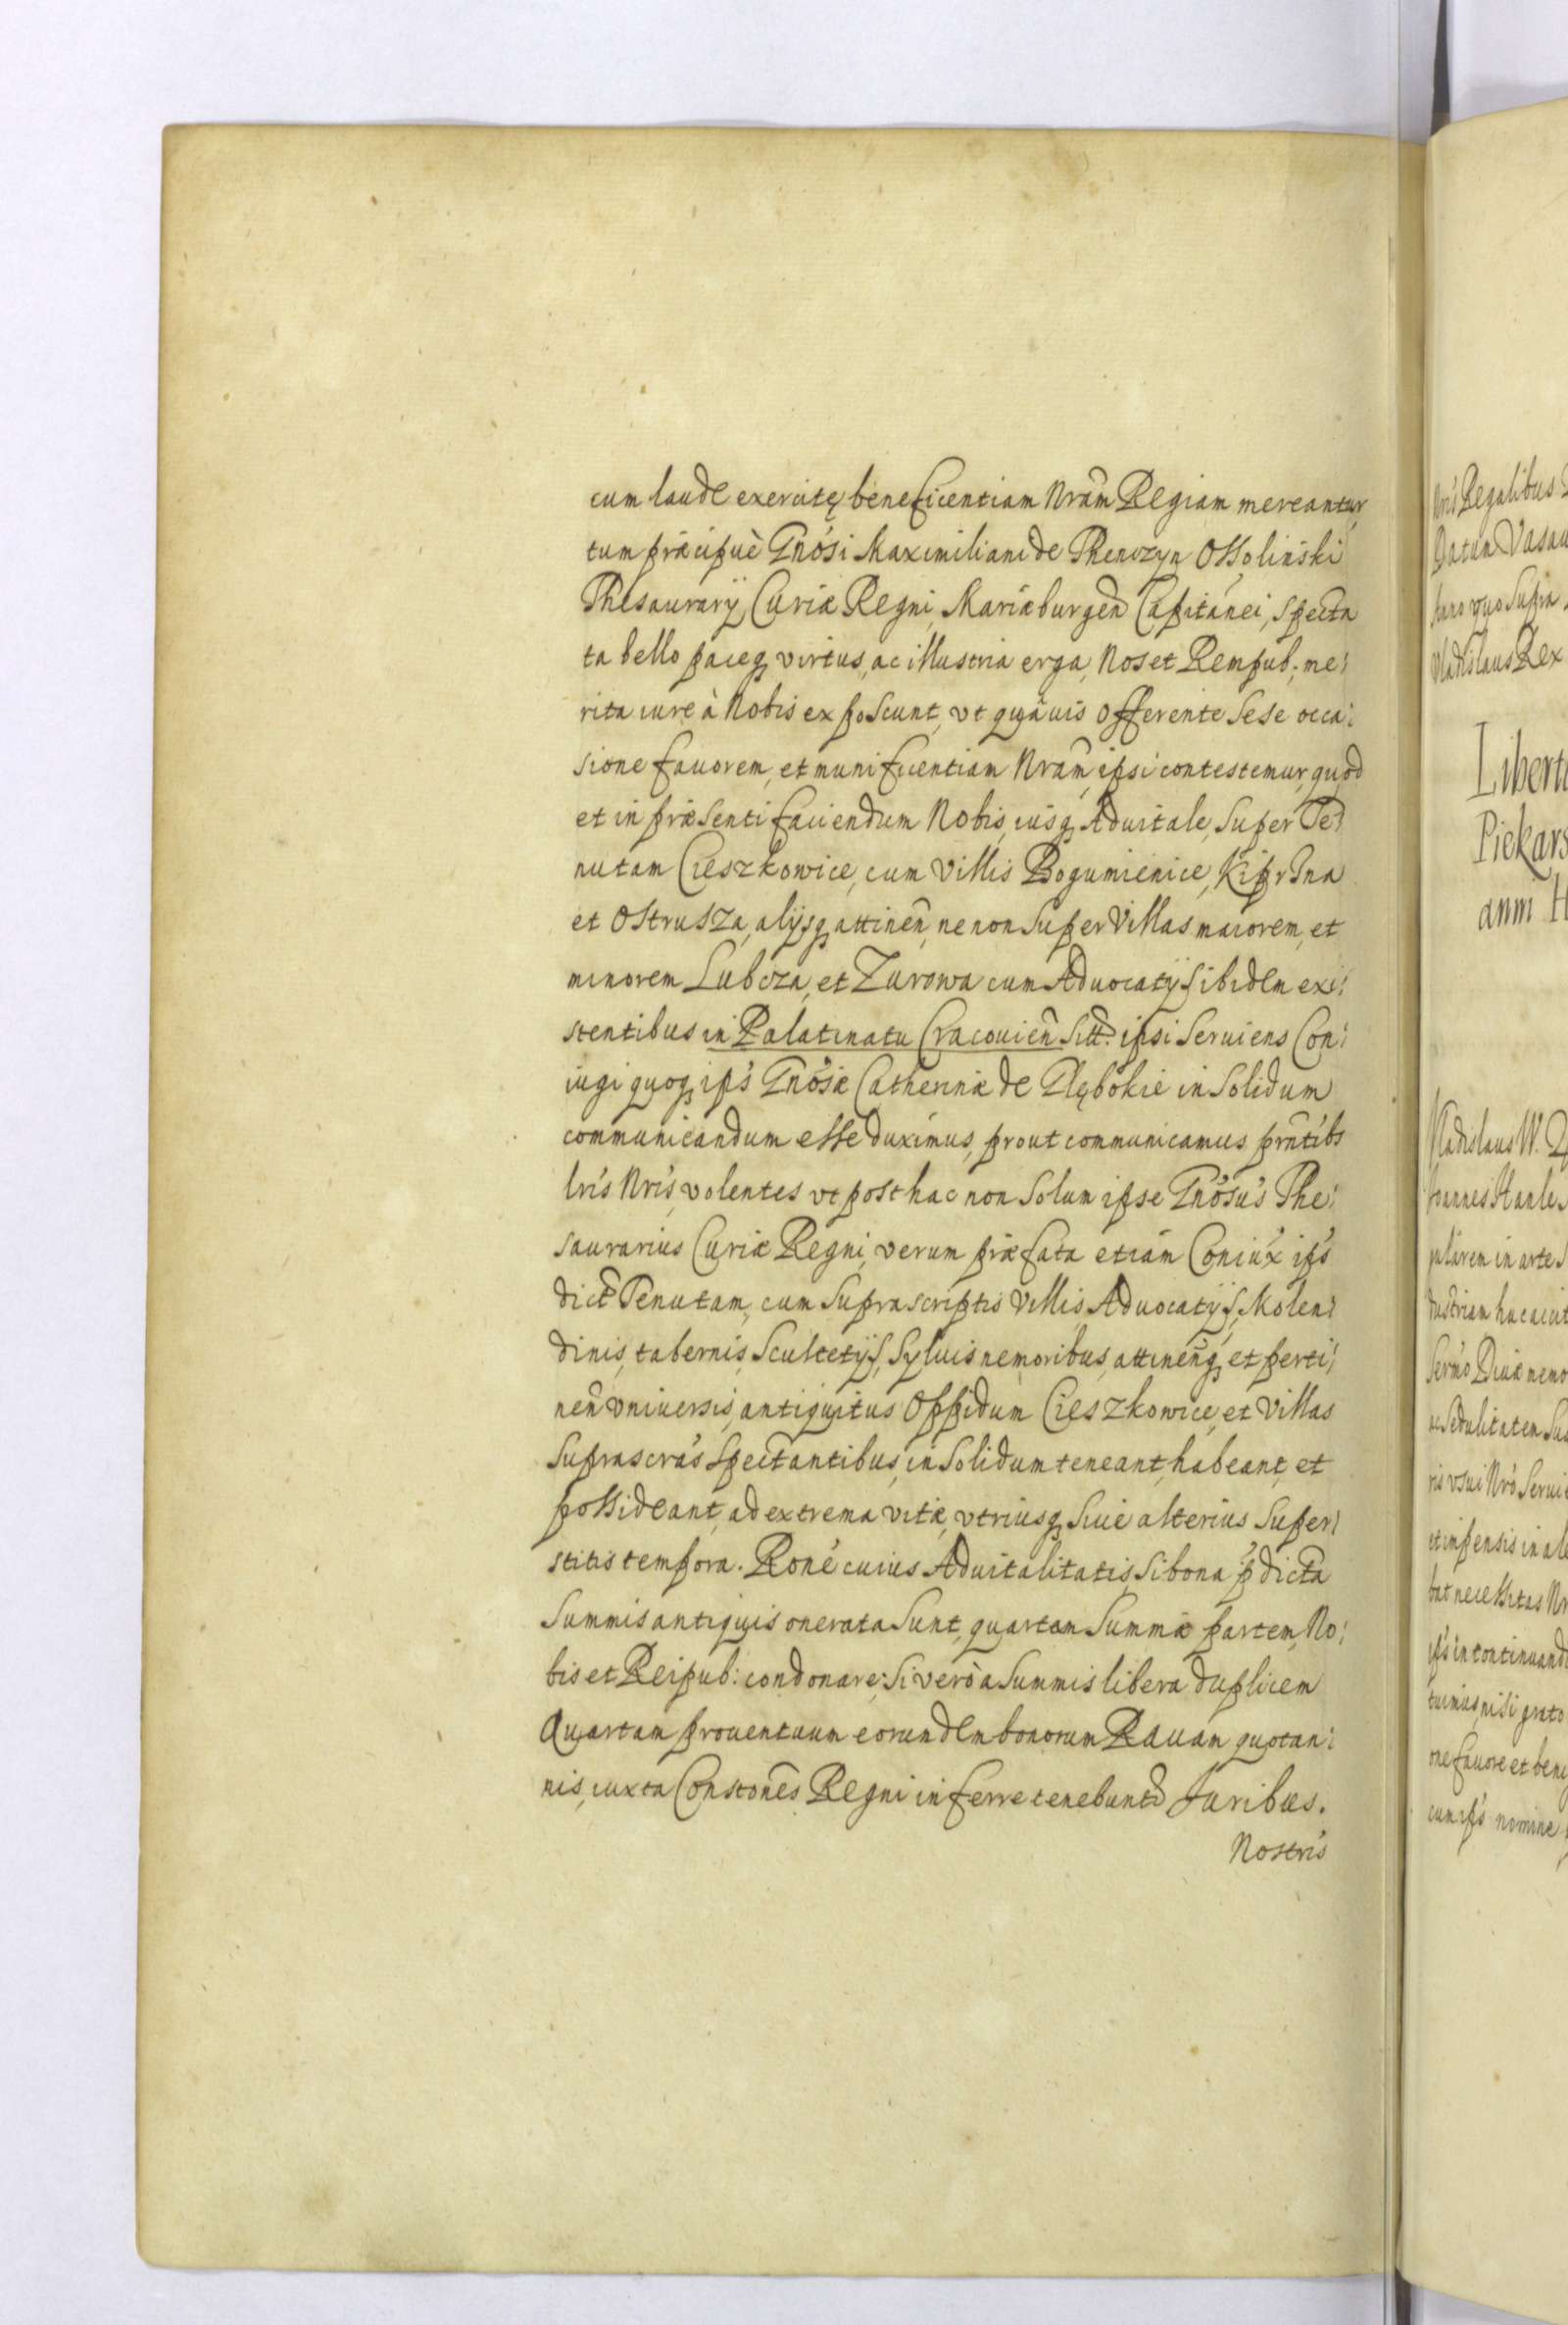 cum laude exercitę beneficentiam Nram Regiam mereantur,
tum præcipuè Gnosi Maximiliani de Thenczyn Ossolinski
Thesaurarÿ Curiæ Regni, Mariæburgen Capitanei, specta
ta bello paceq virtus, ac illustria erga Nos et Rempub: me:
rita iure à Nobis exposcunt, vt quauis offerente sese occa:
sione fauorem, et munificentiam Nram ipsi contestemur, quod
et in præsenti faciendum Nobis, iusq Aduitale, super Te:
nutam Cieszkowice, cum villis Bogumienice, Kipszna
et Ostrusza, alÿsq attinen, nenon super Villas maiorem, et
minorem Lubcza, et Zurowa cum Aduocatÿs ibidem exi:
stentibus in Palatinatu Cracouien sitt. ipsi seruiens Con:
iugi quoq ips Gnosæ Catherinæ de Głębokie in solidum
communicandum esse duximus, prout communicamus prntibs
lris Nris, volentes vt posthac non solum ipse Gnosus The:
saurarius Curiæ Regni, verum præfata etiam Coniux ips
dict Tenutam, cum suprascriptis Villis, Aduocatÿs, Molen:
dinis, tabernis, Scultetÿs, Syluis nemoribus, attinenq et perti:
nen vniuersis, antiquitus Oppidum Cieszkowice, et Villas
suprascras spectantibus, in solidum teneant, habeant, et
possideant, ad extrema vitæ, vtriusq siue alterius super:
stitis tempora. Rone cuius Aduitalitatis, si bona pdicta
summis antiquis onerata sunt, quartam summæ partem, No:
bis et Reipub: condonare; si verò a summis libera duplicem
Quartam prouentuum eorundem bonorum Rauam quotan:
nis, iuxta Constones Regni inferre tenebuntr Juribus.
Nostris
nris Regalibus
Datum Vasau
supra
Vladislaus Rex
Liberta
Piekars
anni H
Vladislaus IV. D
Joannes Stanles
pularem in arte S
dustriam hac
Sermo Diuæ memo
ac sedulitatem su
ris vsui Nro seruit
et impensis in
bat necessitas Nr
ips in continuand
tuimus, nisi grato
one fauore et beni
cum ips nomine